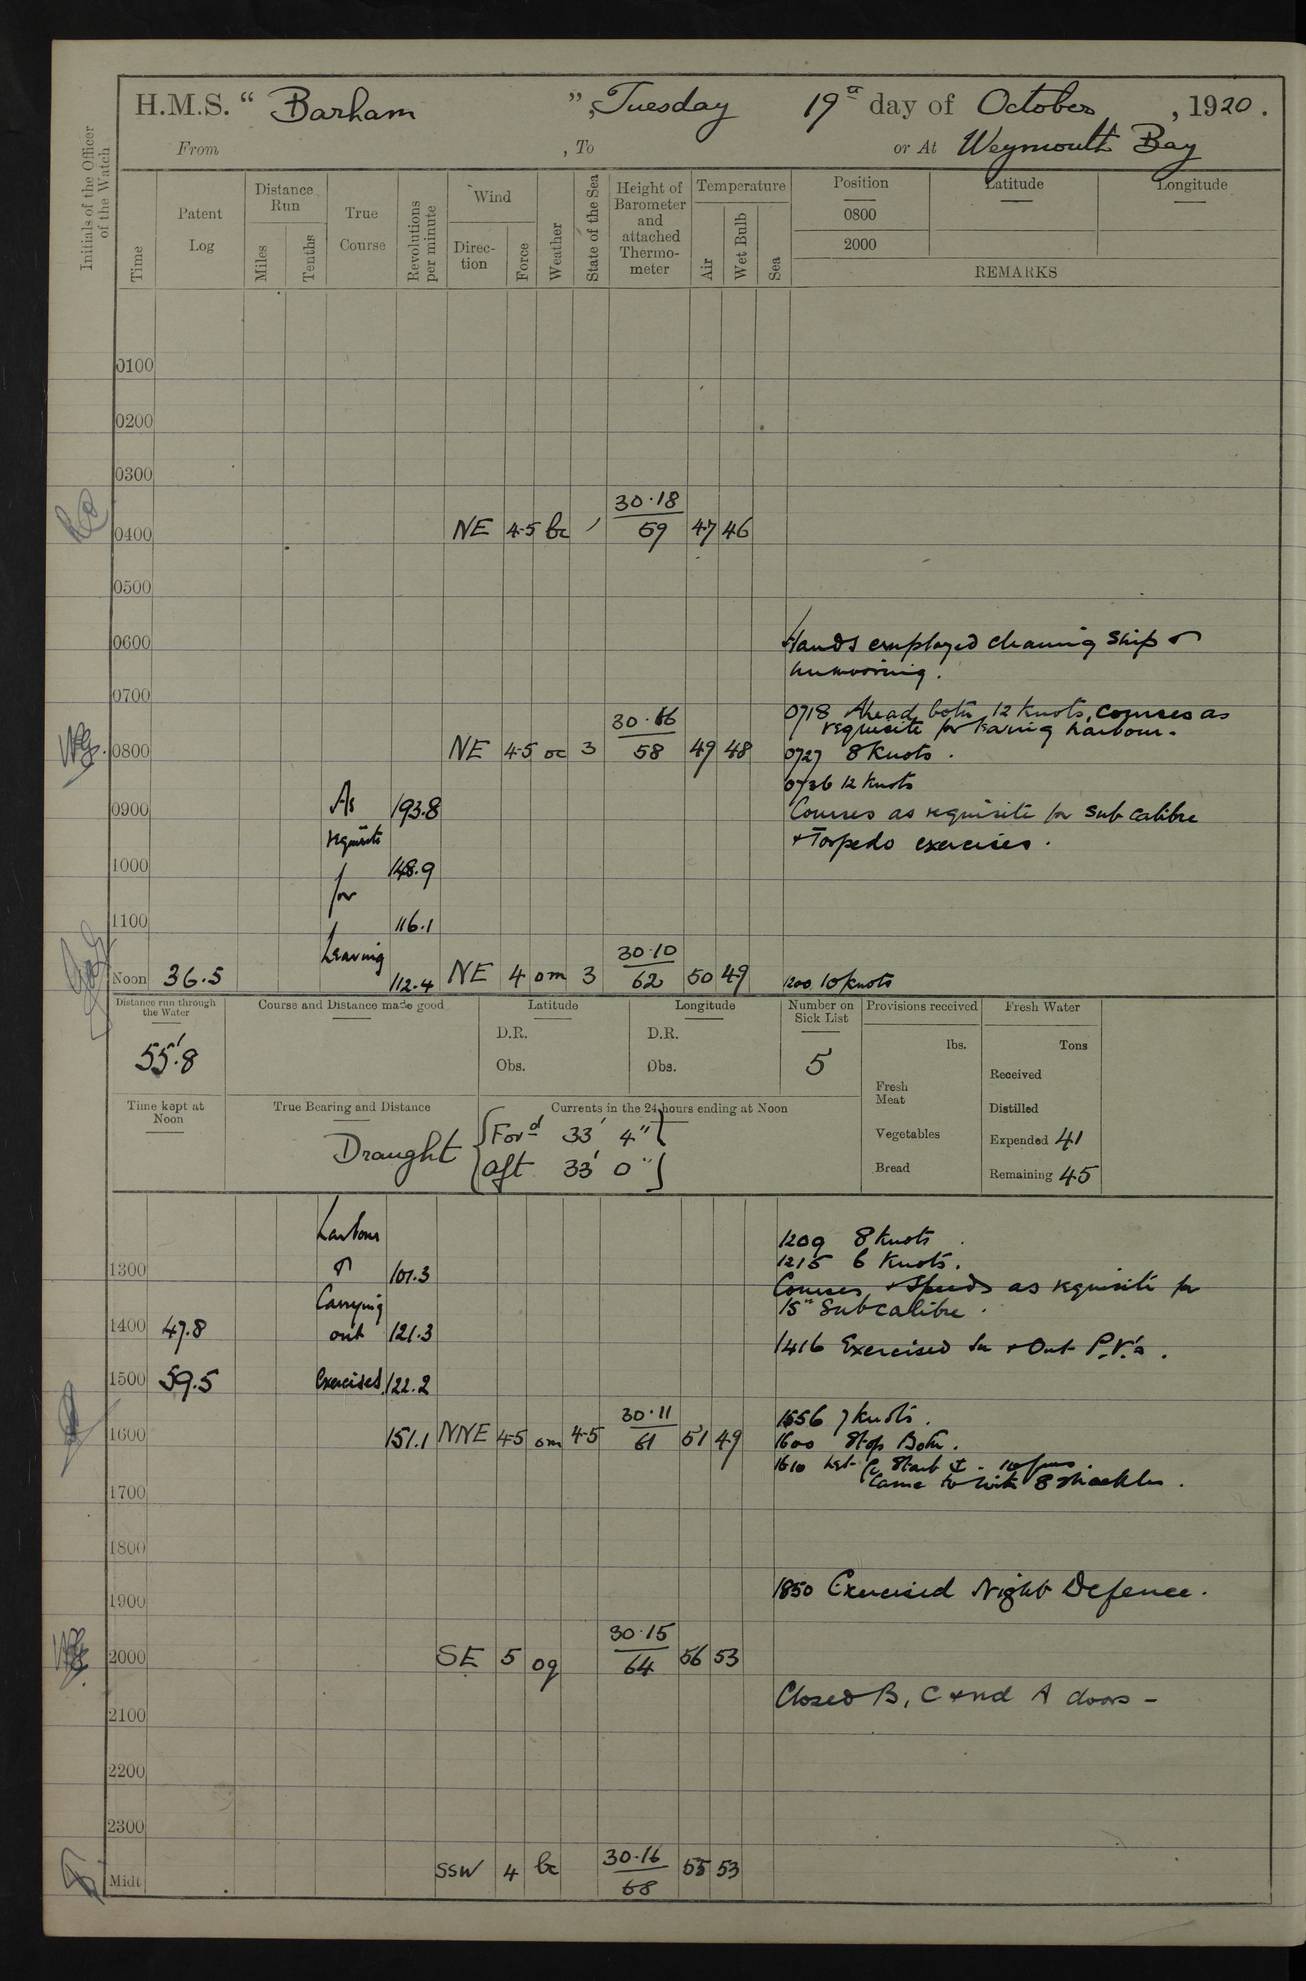 H.M.S. “ Barham ”, Tuesday 19th day of October, 1920.
From , To or At Weymouth Bay
Initials of the Officer of the Watch
Time
Patent Log
Distance Run
Miles
Tenths
True Course
Revolutions per minute
Wind
Direction
Force
Weather
State of the Sea
Height of Barometer and attached Thermometer
Temperature
Air
Wet Bulb
Sea
Position Latitude Longitude
0800
2000
REMARKS
0100
0200
0300
30.18
0400 NE 4-5 bc 59 47 46
0500
0600 Hands employed cleaning Ship &
unmooring.
0700 0718 Ahead both 12 knots, courses as
requisite for leaving harbour.
30.16
0800 NE 4-5 oc 3 58 49 48 0727 8 Knots.
0736 12 Knots
0900 As 193.8 Courses as requisite for sub calibre
requisite + Torpedo exercises.
1000 for 148.9
1100 116.1
Leaving 30.10
Noon 36.5 112.4 NE 4 om 3 62 50 49 1200 10 Knots
Distance run through the Water
55'.8
Course and Distance made good
Latitude
D.R.
Obs.
Longitude
D.R.
Obs.
Number on Sick List
5
Provisions received
lbs.
Fresh Meat
Vegetables
Bread
Fresh Water
Tons
Received
Distilled
Expended 41
Remaining 45
Time kept at Noon
True Bearing and Distance
Currents in the 24 hours ending at Noon
Draught { Ford 33' 4" }
{ Aft 33' 0" }
Harbour 1209 8 Knots
1300 & 101.3 1215 6 Knots.
Carrying Courses + Speeds as requisite for
15" Subcalibre.
1400 47.8 out 121.3 1416 Exercised In + Out P.V.'s.
1500 59.5 Exercises 122.2
30.11 1556 7 Knots.
1600 151.1 NNE 4-5 om 4-5 61 51 49 1600 Stop Both.
1610 Let Go Starb ⚓ . 10 fms.
Came to with 8 shackles.
1700
1800
1850 Exercised Night Defence.
1900
30.15
2000 SE 5 og 64 56 53
Closed B, C and A doors -
2100
2200
2300
30.16
Midt SSW 4 bc 68 55 53